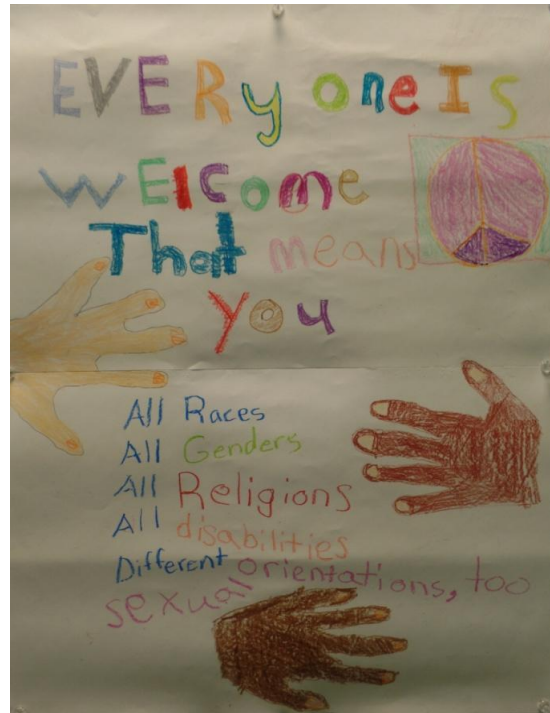 EVERyoneIs
WElcome
That means
you
All Races
All Genders
All Religions
All disabilities
Different orientations, too
sexual